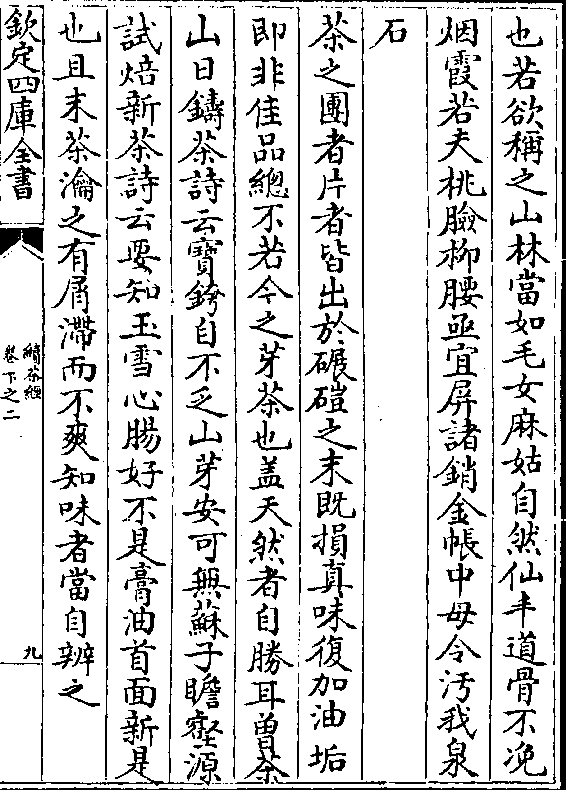 也若欲稱之山林當如毛女麻姑自然仙丰道骨不浼
烟霞若夫桃臉柳腰亟宜屏諸銷金帳中毋令汚我泉
石
茶之團者片者皆出於碾磑之末既損真味復加油垢
即非佳品總不若今之芽茶也盖天然者自勝耳曽茶
山日鑄茶詩云寶銙自不乏山芽安可無蘇子瞻壑源
試焙新茶詩云要知玉雪心腸好不是膏油首面新是
也且末茶瀹之有屑滯而不爽知味者當自辨之
欽定四庫全書
續茶經
卷下之二
九